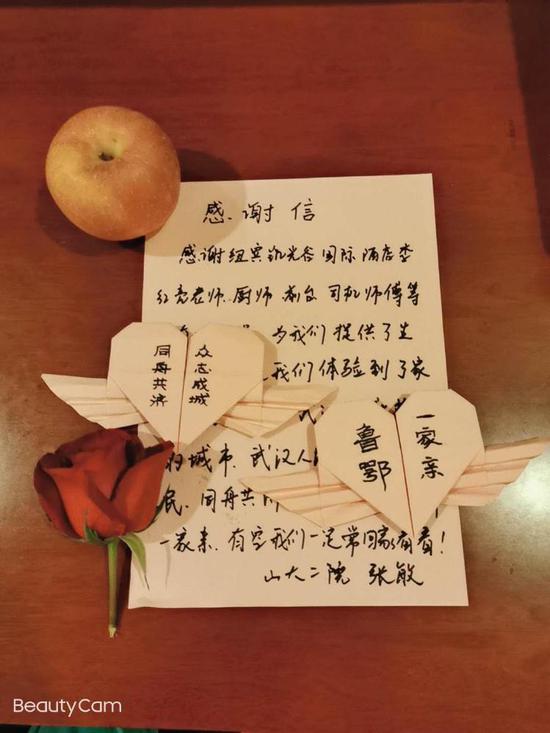 感谢信
感谢纽宾凯光谷国际酒店李
红亮老师、厨师、前台、司机师傅等
为我们提供了生
我们体验到了家
众志成城
同舟共济
一家亲
鲁鄂
的城市、武汉人
民、同舟共
一家亲、有空我们一定常回家看看!
山大二院 张敏
BeautyCam